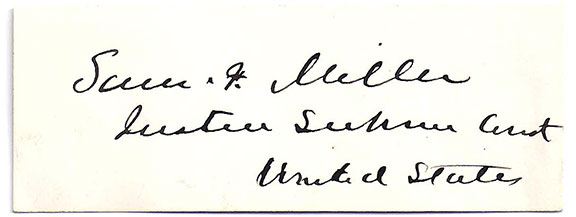 Sam. F. Miller
Justice Supreme Court
United States